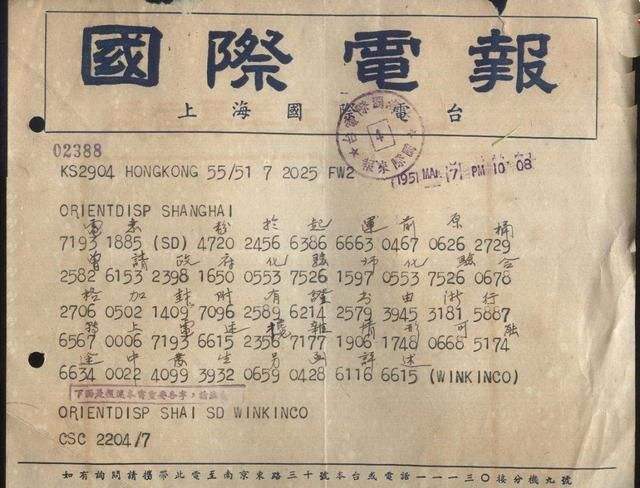 國際電報
上海國際電台
4
02388
KS2904 HONGKONG 55/51 7 2025 FW2
1951 MAR (7) PM 10 08
ORIENTDISP SHANGHAI
電悉粉於起運前原桶
7193 1885 (SD) 4720 2456 6386 6663 0467 0626 2729
曾請政府化驗师化驗合
2582 6153 2398 1650 0553 7526 1597 0553 7526 0678
格加封附有證书由浙行
2706 0502 1409 7096 2589 6214 2579 3945 3181 5887
上電述攙雜情形可
6567 0006 7193 6615 2356 7177 1906 1748 0668 5174
途中發生另函詳述
6634 0022 4099 3932 0659 0428 6116 6615 (WINKINCO)
ORIENTDISP SHAI SD WINKINCO
CSC 2204/7
如有詢問請攜帶此電至南京東路三十號本台或電話一一一三〇接分機九號